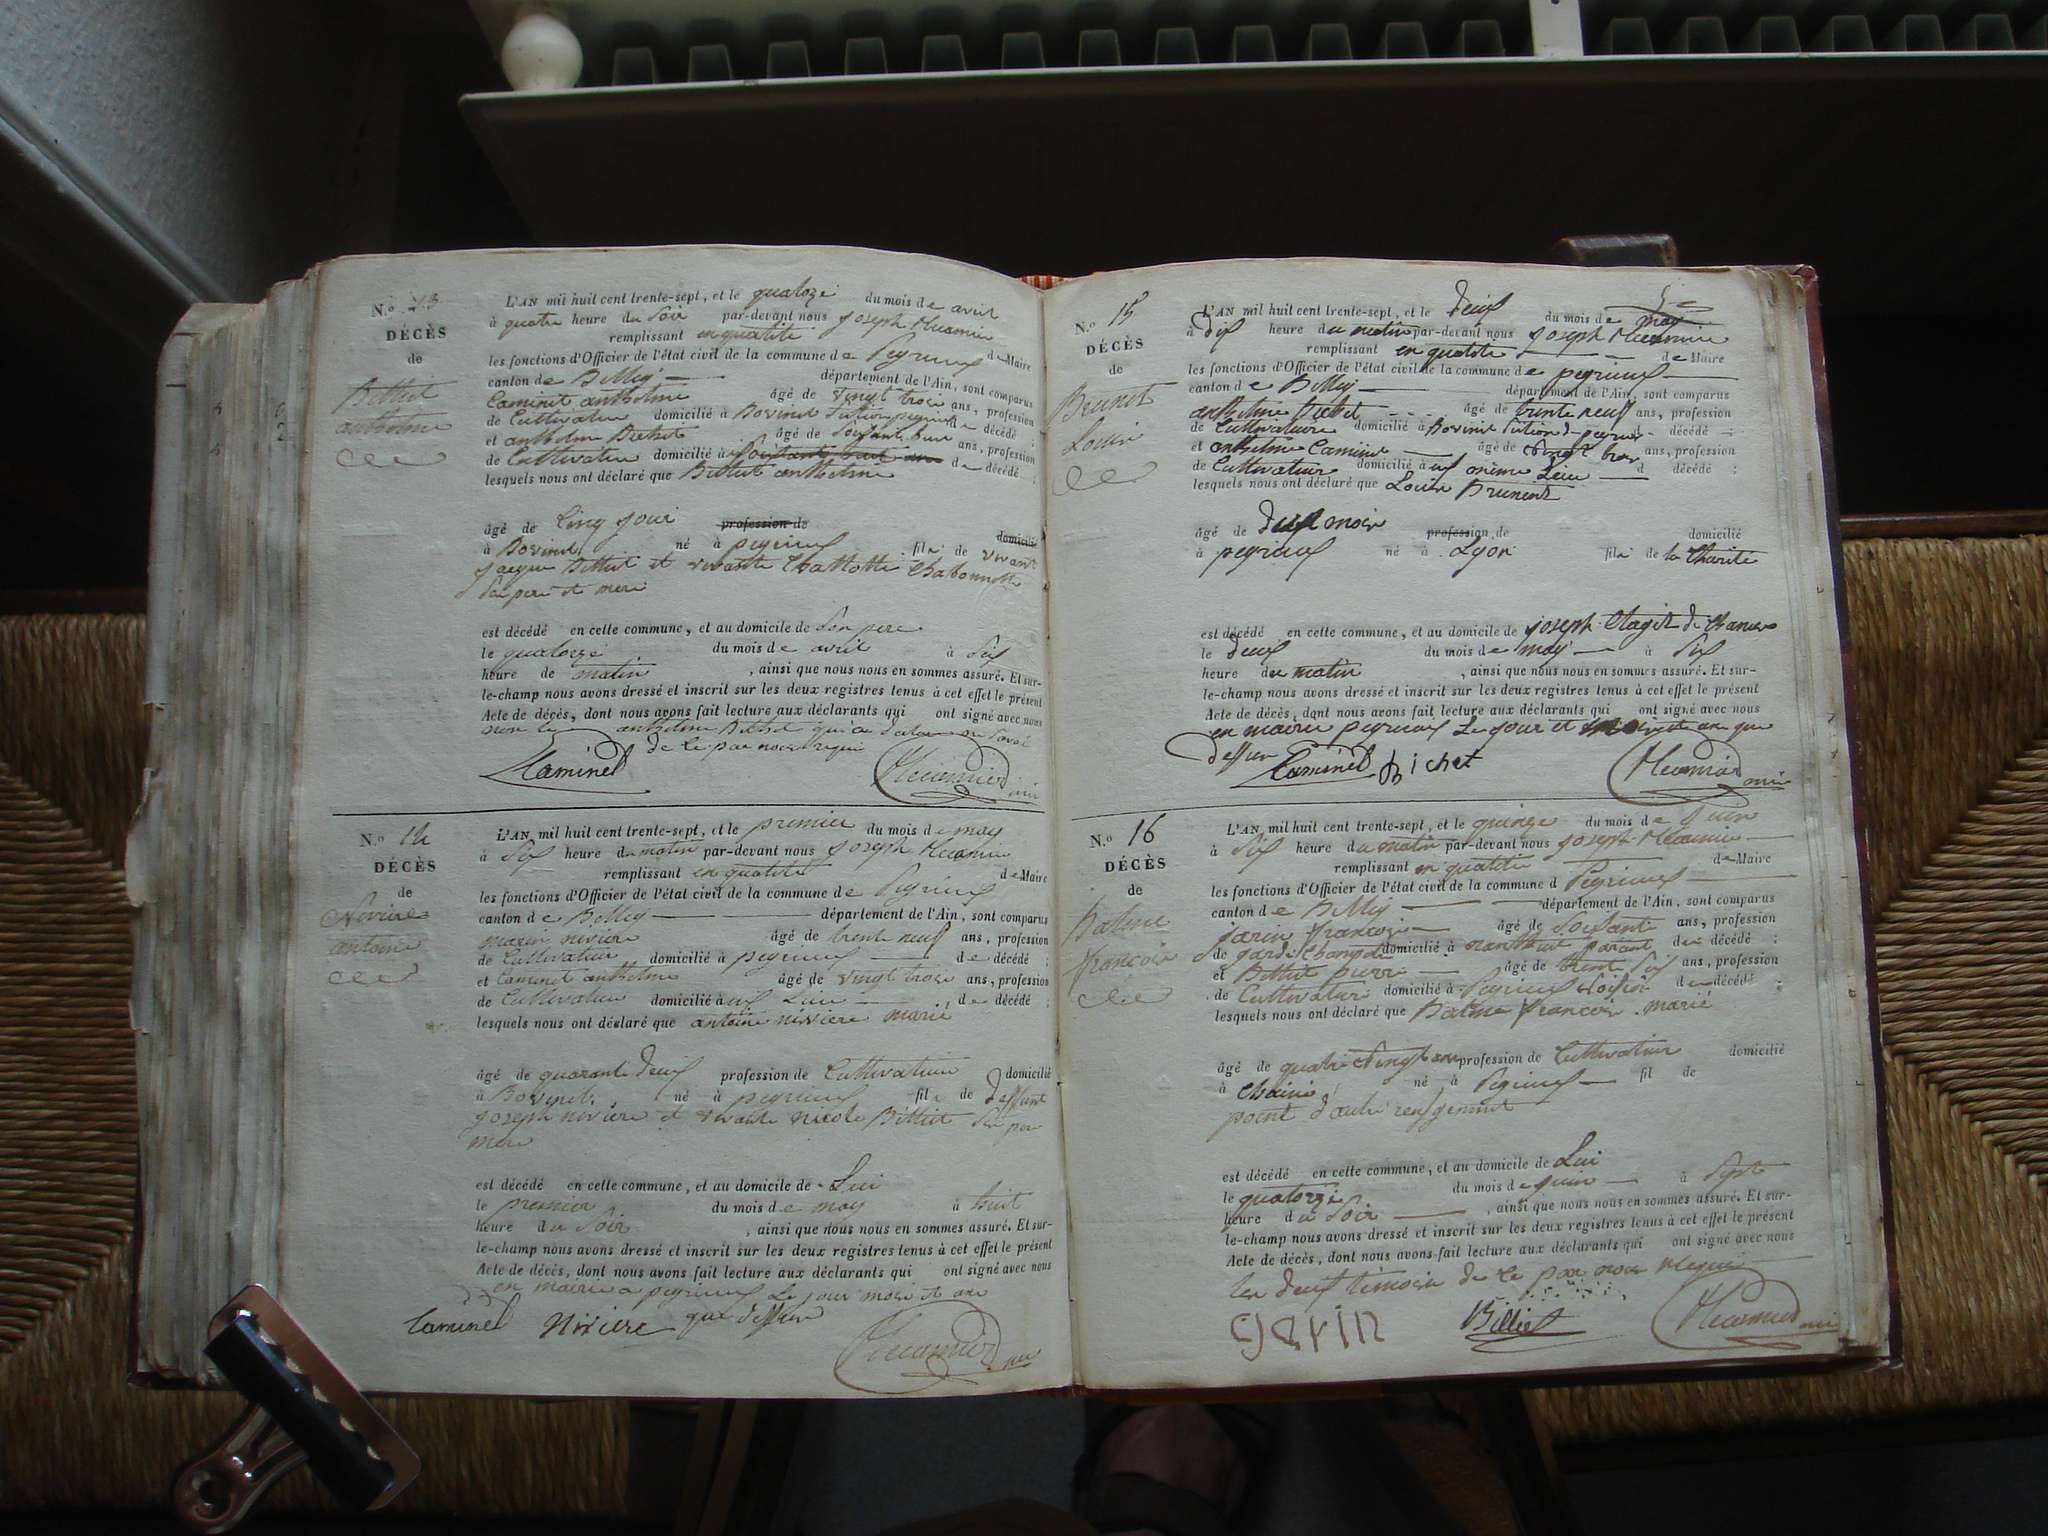 N.o 13
DÉCÈS
de
Billiet
anthelme
L'AN mil huit cent trente-sept, et le quatorze du mois de avril
à quatre heure du soir par-devant nous joseph Mecamier
remplissant en qualité de Maire
les fonctions d'Officier de l'état civil de la commune de Peyrieux
canton de Belley département de l'Ain, sont comparus
Caminet anthelme âgé de vingt trois ans, profession
de Cultivateur domicilié à Bovinel de décédé ;
et anthelme Bichet âgé de Soixante huit ans, profession
de Cultivateur domicilié à de décédé ;
lesquels nous ont déclaré que Billiet anthelme
âgé de Cinq jour profession de domicilié
à Bovinel né à peyrieux fils de vivant
jacque Billiet et vivante Charlotte
Ses pere et mere
est décédé en cette commune, et au domicile de Son pere
le quatorze du mois de avril à Six
heure de matin , ainsi que nous nous en sommes assuré. Et sur-
le-champ nous avons dressé et inscrit sur les deux registres tenus à cet effet le présent
Acte de décès, dont nous avons fait lecture aux déclarants qui ont signé avec nous
non le anthelme Bichet qui a ne Savoir
de le par nous requi
Caminet Mecamier
N.o 14
DÉCÈS
de
Nivière
antoine
L'AN mil huit cent trente-sept, et le premier du mois de may
à Six heure du matin par-devant nous joseph Mecamier
remplissant en qualité de Maire
les fonctions d'Officier de l'état civil de la commune de Peyrieux
canton de Belley département de l'Ain, sont comparus
marin nivière âgé de trente neuf ans, profession
de Cultivateur domicilié à peyrieux de décédé ;
et Caminet anthelme âgé de vingt trois ans, profession
de Cultivateur domicilié à Lieu de décédé ;
lesquels nous ont déclaré que antoine nivière marié
âgé de quarante deux profession de Cultivateur domicilié
à Bovinel né à peyrieux fils de deffunt
joseph nivière et vivante nicole Billiet Ses per
mere
est décédé en cette commune, et au domicile de Lui
le premier du mois de may à huit
heure du Soir , ainsi que nous nous en sommes assuré. Et sur-
le-champ nous avons dressé et inscrit sur les deux registres tenus à cet effet le présent
Acte de décès, dont nous avons fait lecture aux déclarants qui ont signé avec nous
en mairie a peyrieux Le jour mois et an
que dessus
Caminet Nivière Mecamier
N.o 15
DÉCÈS
de
Brunet
Louise
L'AN mil huit cent trente-sept, et le deux du mois de may
à dix heure du matin par-devant nous joseph Mecamier
remplissant en qualité de Maire
les fonctions d'Officier de l'état civil de la commune de peyrieux
canton de Belley département de l'Ain, sont comparus
anthelme Bichet âgé de trente neuf ans, profession
de Cultivateur domicilié à Bovinel d décédé ;
et anthelme Caminet âgé de vingt trois ans, profession
de Cultivateur domicilié à même Lieu d décédé ;
lesquels nous ont déclaré que Louise Brunet
âgé de deux mois profession de domicilié
à peyrieux né à Lyon fils de la Charité
est décédé en cette commune, et au domicile de joseph
le deux du mois de may à Six
heure du matin , ainsi que nous nous en sommes assuré. Et sur-
le-champ nous avons dressé et inscrit sur les deux registres tenus à cet effet le présent
Acte de décès, dont nous avons fait lecture aux déclarants qui ont signé avec nous
en mairie peyrieux Le jour et an que
dessus Caminet Bichet Mecamier
N.o 16
DÉCÈS
de
Balme
françois
L'AN mil huit cent trente-sept, et le quinze du mois de Juin
à Six heure du matin par-devant nous joseph Mecamier
remplissant en qualité de Maire
les fonctions d'Officier de l'état civil de la commune d Peyrieux
canton de Belley département de l'Ain, sont comparus
jarin françois âgé de Soixante ans, profession
de garde Champetre domicilié à parant de décédé ;
et Billiet pierre âgé de trente Six ans, profession
de Cultivateur domicilié à Peyrieux voisin de décédé ;
lesquels nous ont déclaré que Balme françois marié
âgé de quatre vingt ans profession de Cultivateur domicilié
à né à Peyrieux fil de
point d'autre
est décédé en cette commune, et au domicile de Lui
le quatorze du mois de juin à Sept
heure du Soir , ainsi que nous nous en sommes assuré. Et sur-
le-champ nous avons dressé et inscrit sur les deux registres tenus à cet effet le présent
Acte de décès, dont nous avons fait lecture aux déclarants qui ont signé avec nous
les deux témoins de ce par nous requi
Jarin Billiet Mecamier